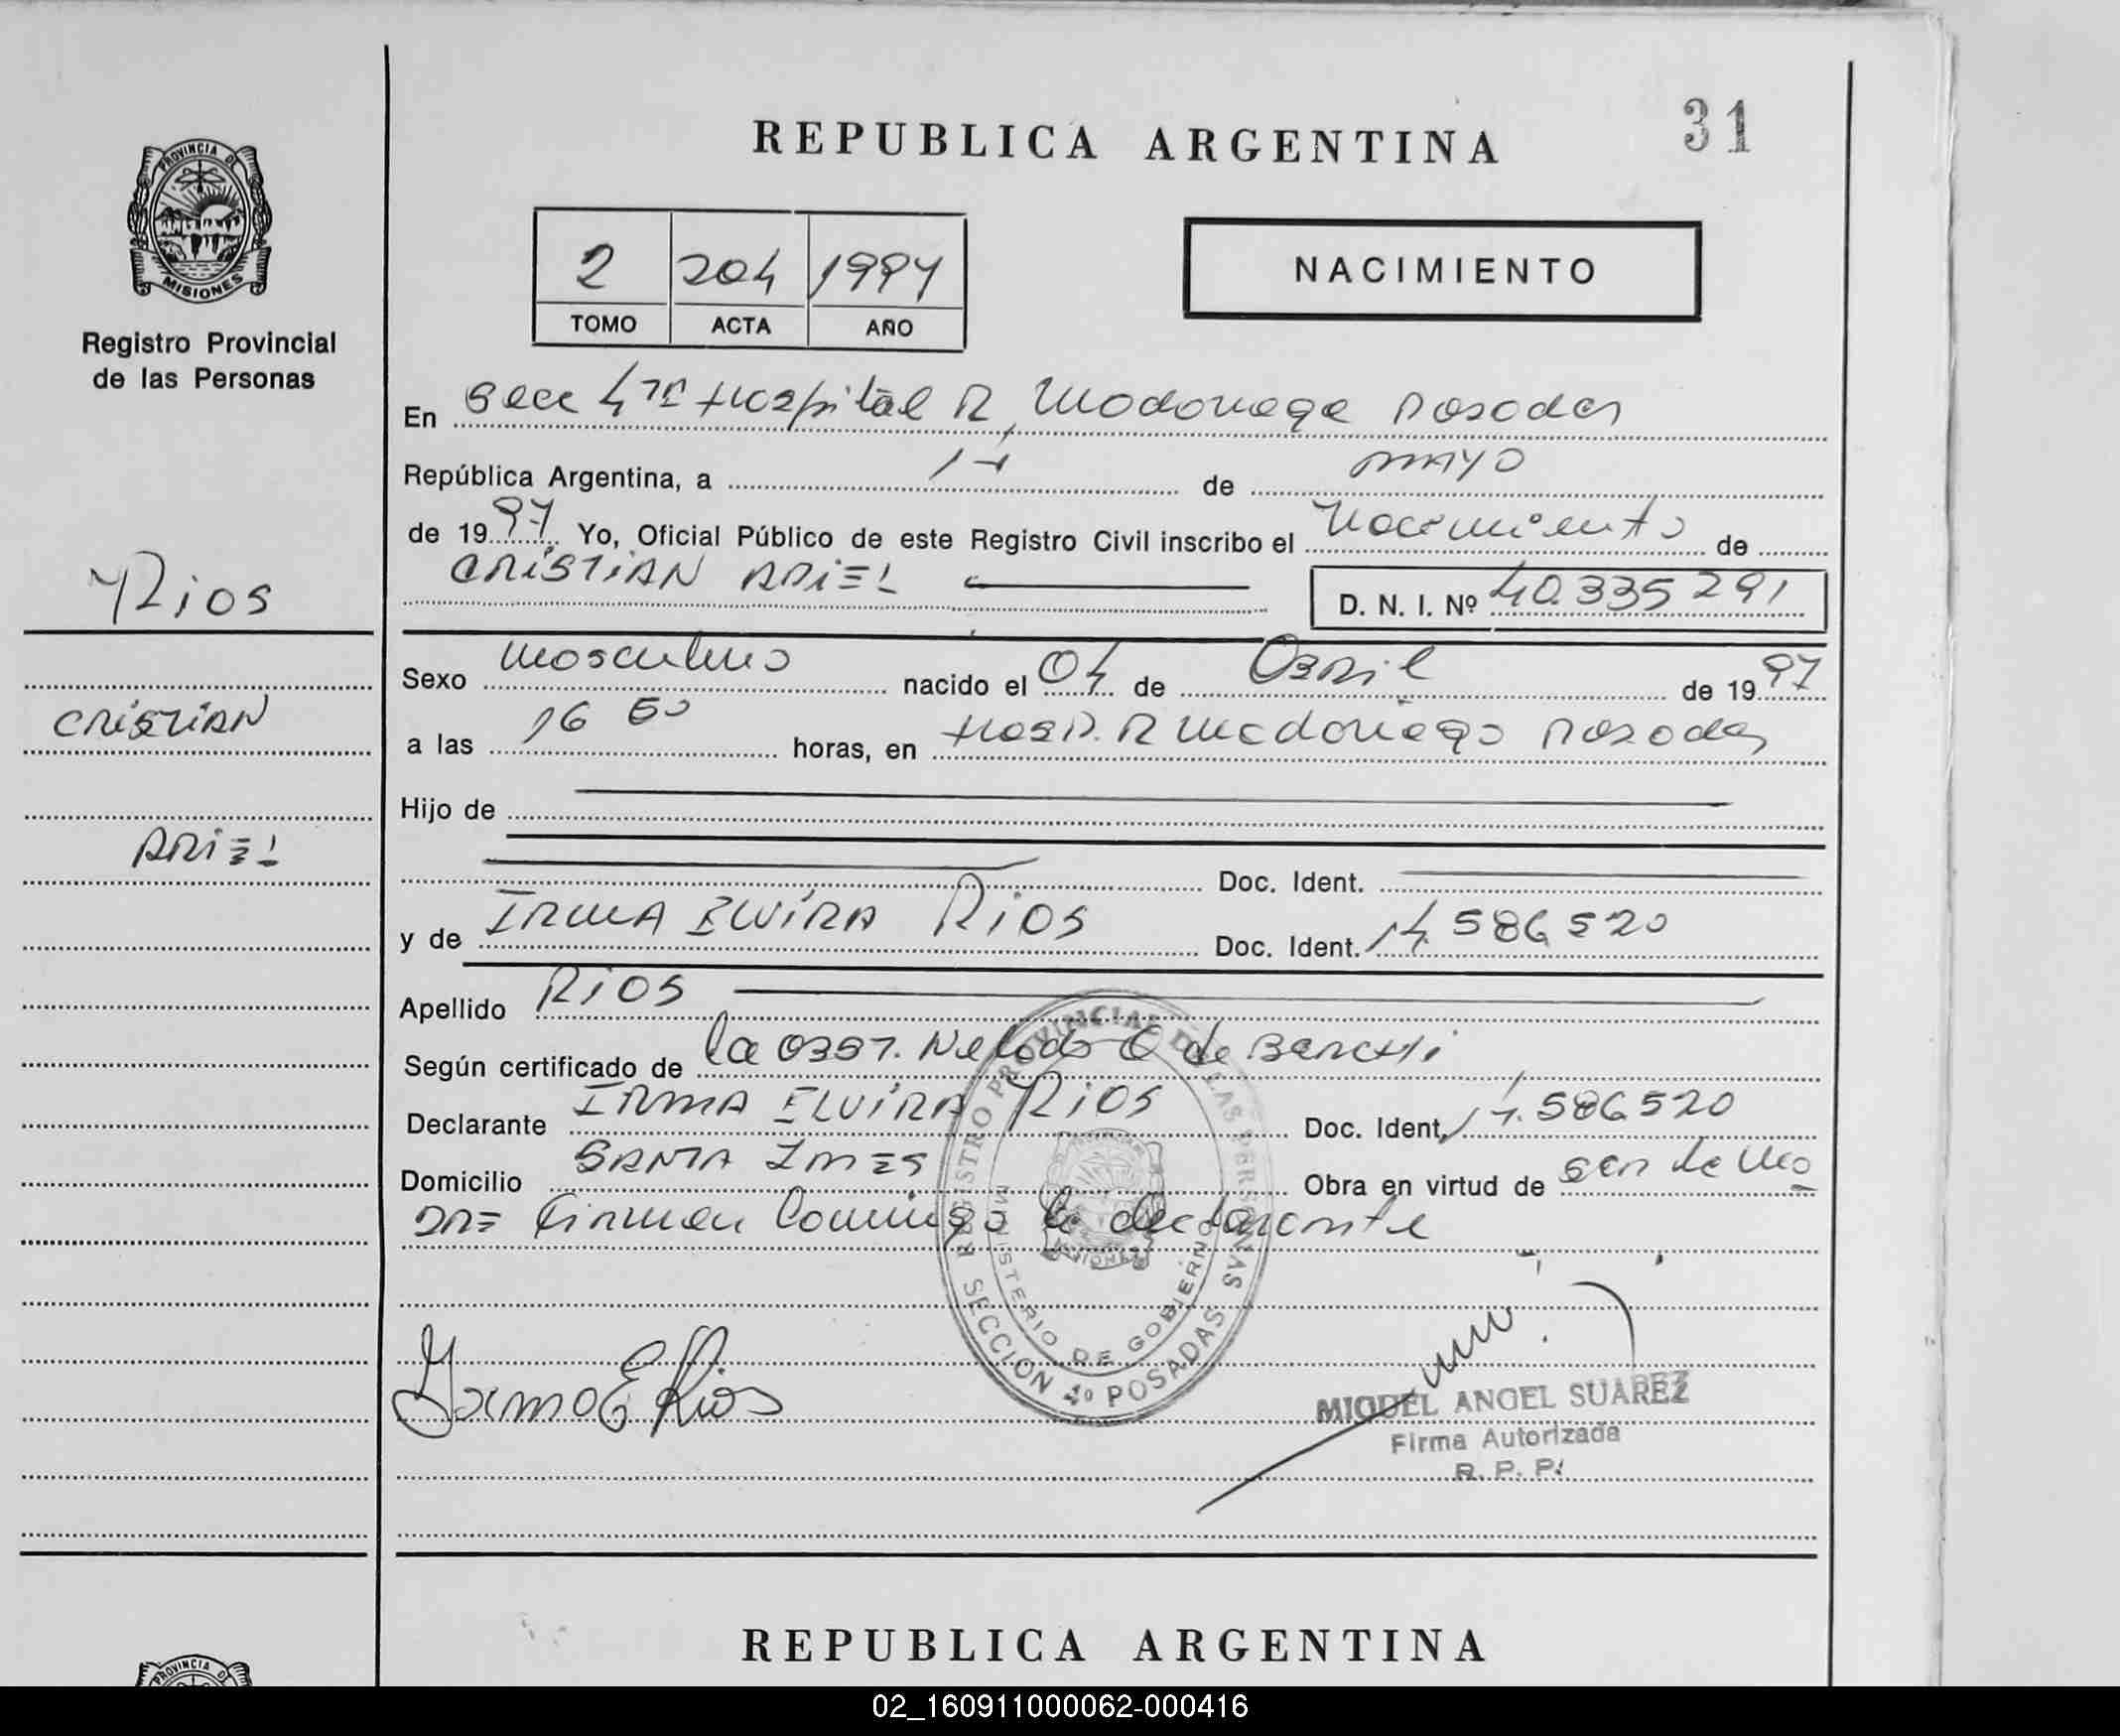 REPUBLICA ARGENTINA
31
PROVINCIA DE
MISIONES
Registro Provincial
de las Personas
2 204 1997
TOMO ACTA AÑO
NACIMIENTO
En Secc 4ta Hospital R. Madariaga Posadas
República Argentina, a de mayo
de 1997. Yo, Oficial Público de este Registro Civil inscribo el Nacimiento de
CRISTIAN ARIEL D. N. I. Nº 40.335 291
Rios
CRISTIAN
ARIEL
Sexo masculino nacido el 04 de Abril de 1997
a las 16 50 horas, en Hosp. R Madariaga Posadas
Hijo de
Doc. Ident.
y de IRMA ELVIRA RIOS Doc. Ident. 14.586520
Apellido RIOS
Según certificado de la Obst. de
Declarante IRMA ELVIRA RIOS Doc. Ident. 14.586520
Domicilio SANTA INES Obra en virtud de ser la Ma
dre Firman conmigo la declarante
REGISTRO PROVINCIAL DE LAS PERSONAS
MINISTERIO DE GOBIERNO
MISIONES
SECCION 4º POSADAS
Irma E Rios
MIGUEL ANGEL SUAREZ
Firma Autorizada
R. P. P.
REPUBLICA ARGENTINA
PROVINCIA DE
02_160911000062-000416